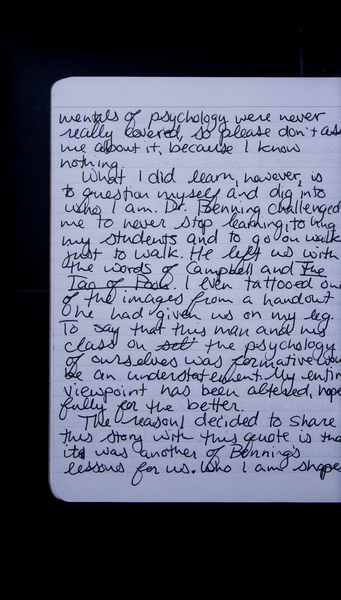 mentals of psychology were never
really covered, so please don't ask
me about it, because I know
nothing.
What I did learn, however, is
to question myself and dig into
who I am. Dr. Benning challenged
me to never stop learning, to hug
my students and to go on walks
just to walk. He left us with
the words of Campbell and The
Tao of Pooh. I even tattooed one
of the images from a handout
he had given us on my leg.
To say that this man and his
class on the psychology
of ourselves was formative wou
be an understatement. My entir
viewpoint has been altered, hope
fully for the better.
The reason I decided to share
this story with this quote is tha
it was another of Benning's
lessons for us. Who I am shape